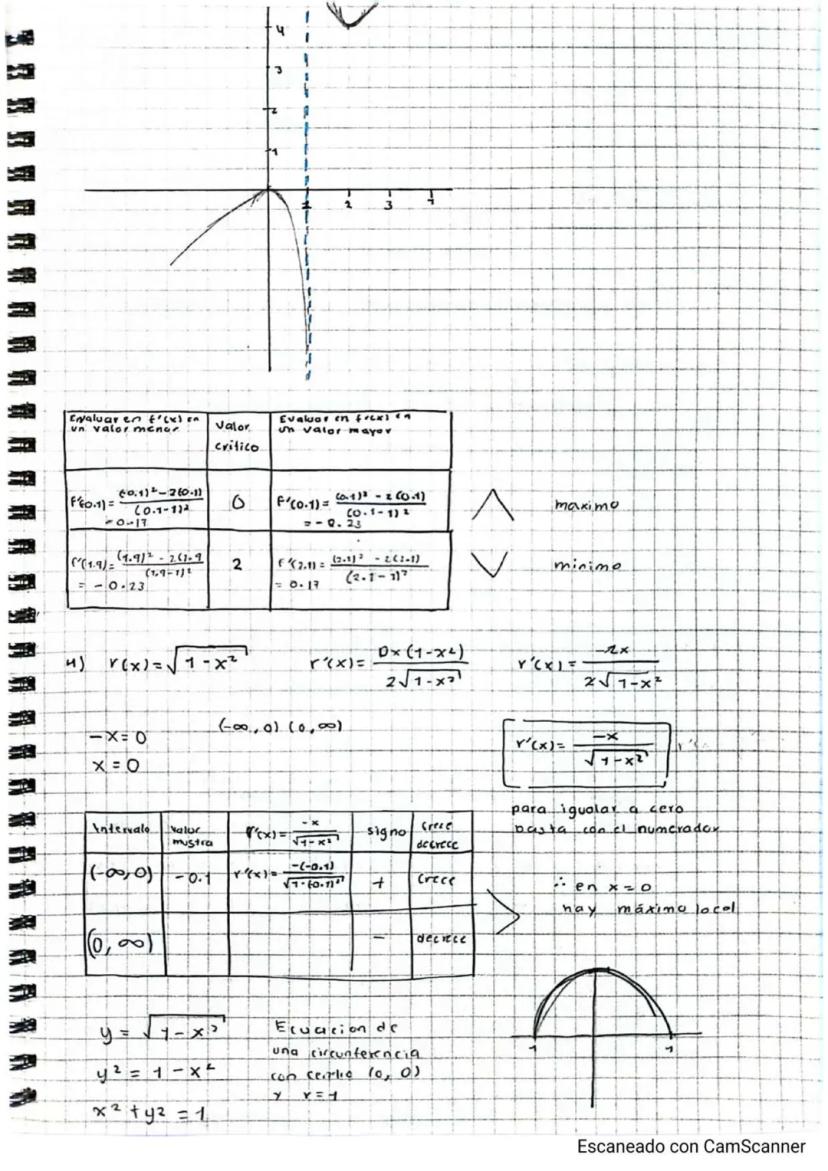 4
3
2
1
1 2 3 4
Evaluar en f'(x) en un valor menor | Valor crítico | Evaluar en f'(x) en un valor mayor
f'(-0.1) = (-0.1)² - 2(-0.1) / (-0.1-1)² = 0.17 | 0 | f'(0.1) = (0.1)² - 2(0.1) / (0.1-1)² = -0.23
maximo
f'(1.9) = (1.9)² - 2(1.9 / (1.9-1)² = -0.23 | 2 | f'(2.1) = (2.1)² - 2(2.1) / (2.1-1)² = 0.17
minimo
4) r(x) = √1-x² r'(x) = Dx(1-x²) / 2√1-x² r'(x) = -2x / 2√1-x²
-x = 0 (-∞,0) (0,∞)
x = 0
r'(x) = -x / √1-x²
para igualar a cero
basta con el numerador
Intervalo | Valor mustra | r'(x) = -x / √1-x² | signo | crece decrece
(-∞,0) | -0.1 | r'(x) = -(-0.1) / √1-(0.1)² | + | crece
(0,∞) | - | decrece
∴ en x=0
hay máximo local
y = √1-x²
y² = 1-x²
x² + y² = 1
Ecuación de
una circunferencia
con centro (0,0)
y r=1
1 1
Escaneado con CamScanner